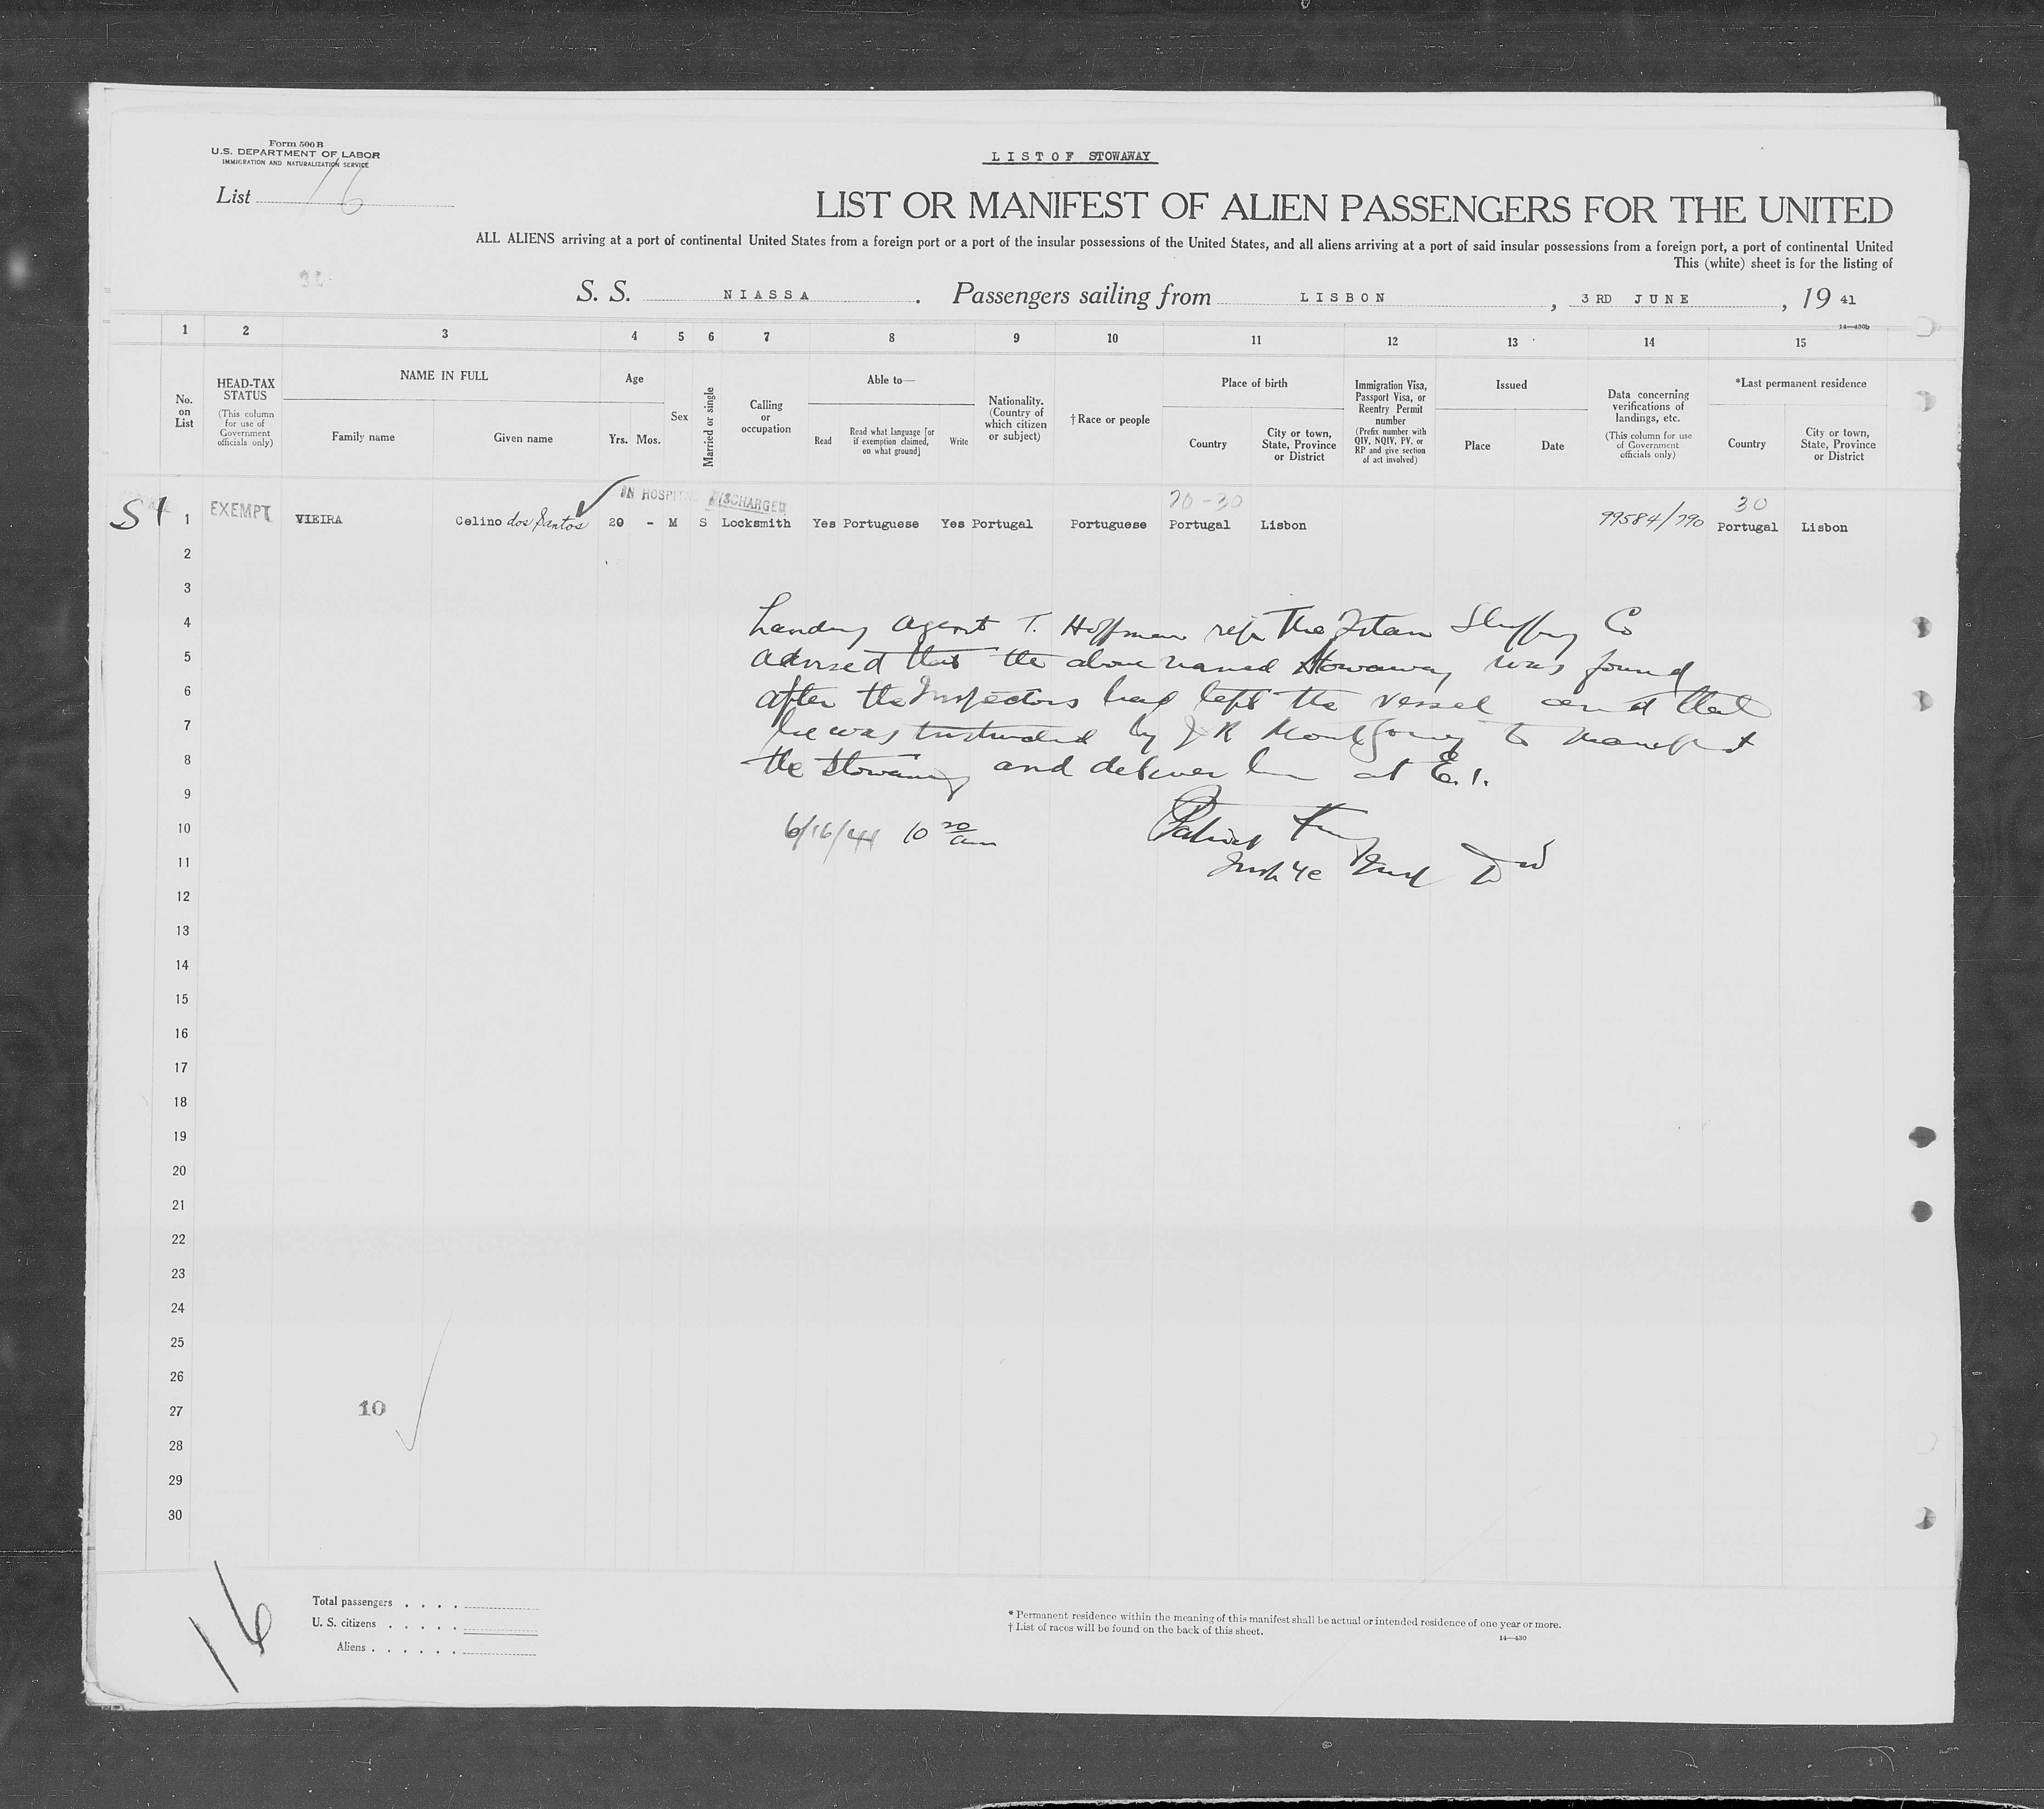 Form 500B
U.S. DEPARTMENT OF LABOR
IMMIGRATION AND NATURALIZATION SERVICE
List 16
L I S T O F STOWAWAY
LIST OR MANIFEST OF ALIEN PASSENGERS FOR THE UNITED
ALL ALIENS arriving at a port of continental United States from a foreign port or a port of the insular possessions of the United States, and all aliens arriving at a port of said insular possessions from a foreign port, a port of continental United
This (white) sheet is for the listing of
S. S. NIASSA . Passengers sailing from LISBON , 3 RD JUNE , 19 41
14—430b
1 2 3 4 5 6 7 8 9 10 11 12 13 14 15
No. on List
HEAD-TAX STATUS
(This column for use of Government officials only)
NAME IN FULL
Family name
Given name
Age
Yrs. Mos.
Sex
Married or single
Calling or occupation
Able to—
Read
Read what language [or if exemption claimed, on what ground]
Write
Nationality. (Country of which citizen or subject)
†Race or people
Place of birth
Country
City or town, State, Province or District
Immigration Visa, Passport Visa, or Reentry Permit number
(Prefix number with QIV, NQIV, PV, or RP and give section of act involved)
Issued
Place
Date
Data concerning verifications of landings, etc.
(This column for use of Government officials only)
*Last permanent residence
Country
City or town, State, Province or District
IN HOSPITAL DISCHARGED 70-30 30
S1 1 EXEMPT VIEIRA Celino dos Santos 20 - M S Locksmith Yes Portuguese Yes Portugal Portuguese Portugal Lisbon 99584/790 Portugal Lisbon
2
3
4
5
6
7
8
9
10
11
12
13
14
15
16
17
18
19
20
21
22
23
24
25
26
27
28
29
30
Landing Agent T. Hoffman The Shipping Co
advised that the above named Stowaway was found
after the Inspectors had left the vessel and that
he was instructed by J R Montgomery to manifest
the stowaway and deliver him at E. I.
6/16/41 10 20 am
Patrick
10
16
Total passengers . . . .
U. S. citizens . . . . .
Aliens . . . . . .
* Permanent residence within the meaning of this manifest shall be actual or intended residence of one year or more.
† List of races will be found on the back of this sheet.
14—430